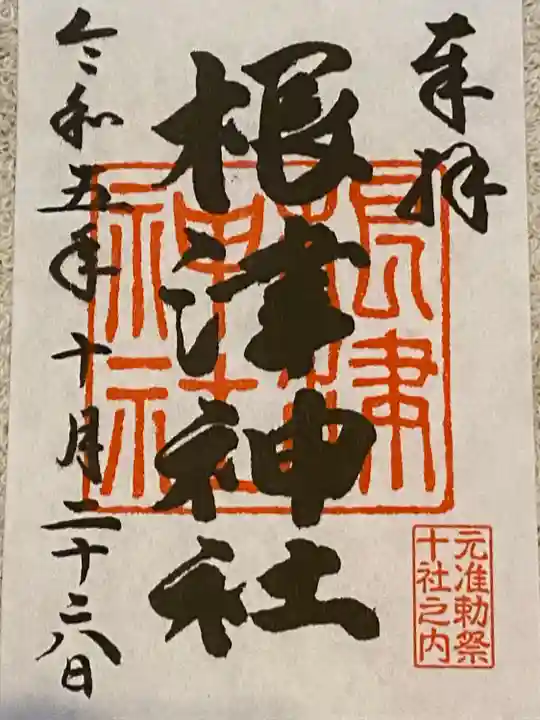 奉拝
根津神社
根津
神社
元准勅祭
十社之内
令和五年十月二十二八日